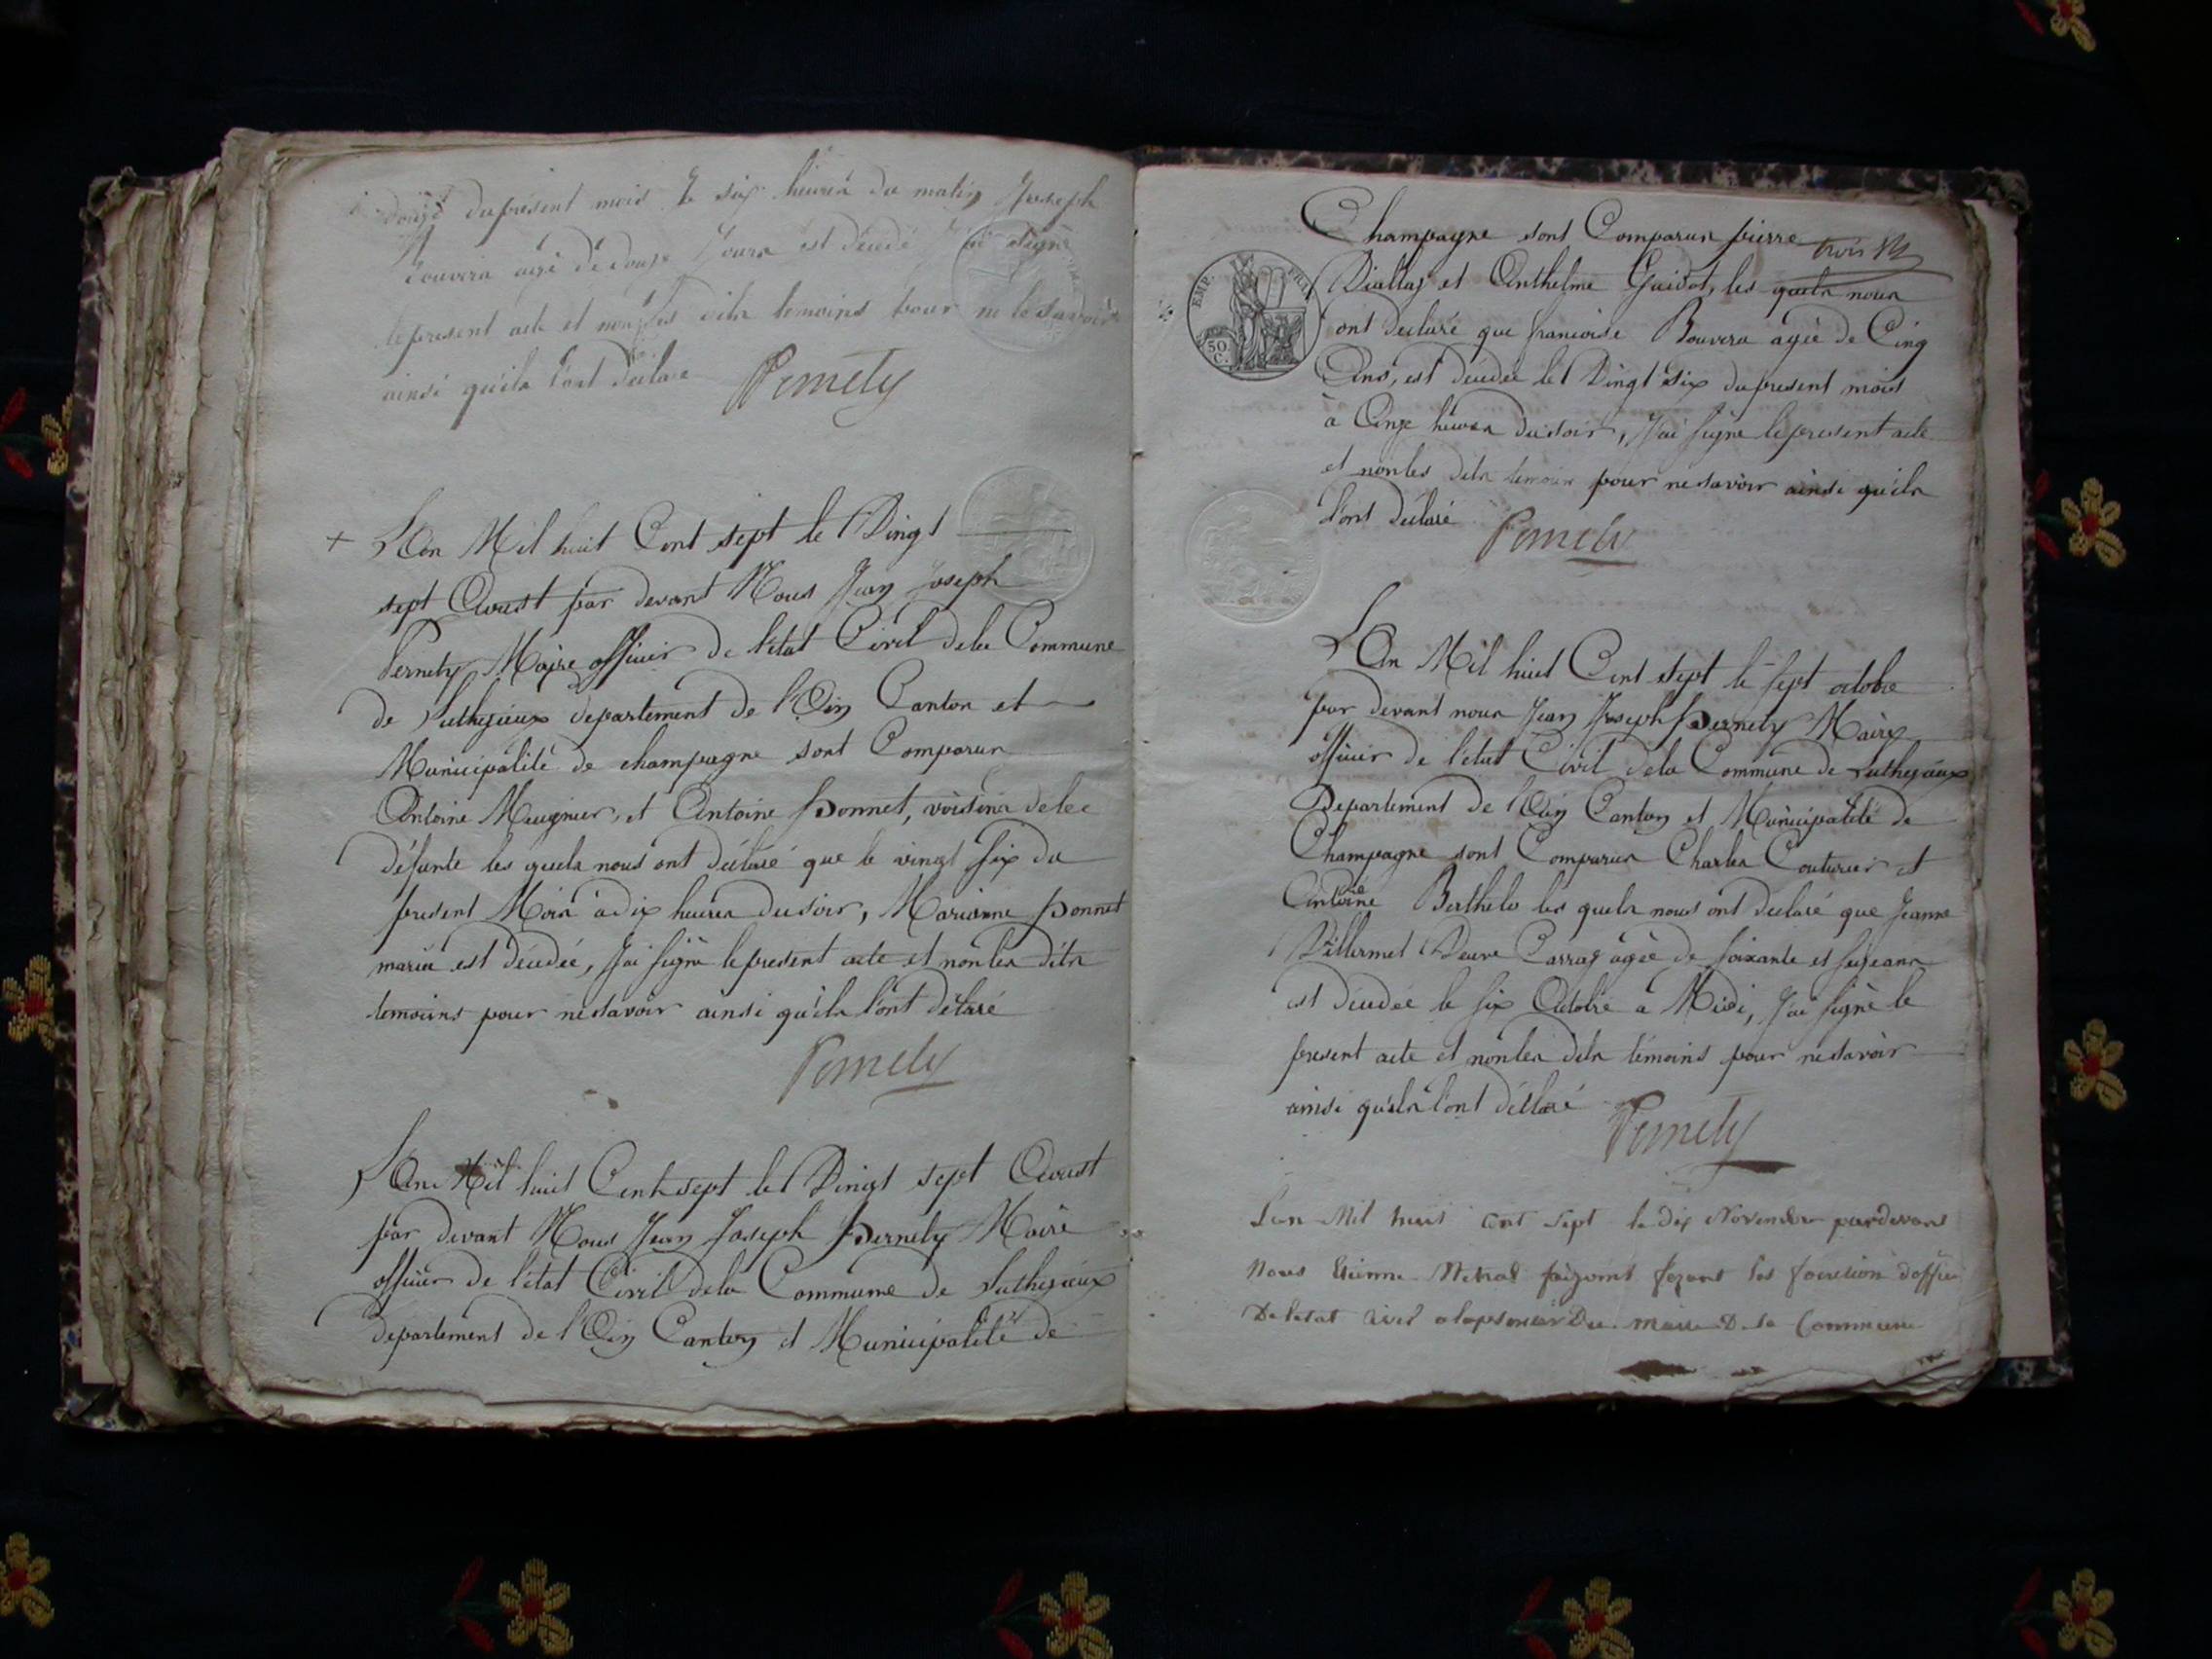 douze du présent mois à six heures du matin Joseph
Bouvera agé de douze Jours est décedé J'ai signé
le present acte et non les dits temoins pour ne le savoir
ainsi qu'ils l'ont déclaré Pernety
+ L'An Mil huit Cent sept le Vingt
sept Aoust par devant Nous Jean Joseph
Pernety Maire officier de l'état Civil dela Commune
de Luthezieux departement de l'Ain Canton et
Municipalité de champagne sont Comparus
Antoine Meugnier, et Antoine Ponnet, voisins dela
défunte les quels nous ont déclaré que le vingt six du
present Mois à dix heures du soir, Marianne Ponnet
mariée est décedée, J'ai signé le present acte et non les dits
temoins pour ne savoir ainsi qu'ils l'ont déclaré
Pernety
L'An Mil huit Cent sept le Vingt sept Aoust
par devant Nous Jean Joseph Pernety Maire
officier de l'état Civil dela Commune de Luthezieux
departement de l'Ain Canton et Municipalité de
Champagne sont Comparus pierre
trois
EMP. FRAN.
50.
C.
et Anthelme Guidot, les quels nous
ont declaré que francoise Bouvera agée de Cinq
Ans, est décedée le Vingt six du present mois
à Onze heures du soir, J'ai signé le present acte
et non les dits temoins pour ne savoir ainsi qu'ils
l'ont déclaré Pernety
L'An Mil huit Cent sept le sept octobre
par devant nous Jean Joseph Pernety Maire
officier de l'état Civil dela Commune de Luthezieux
Departement de l'Ain Canton et Municipalité de
Champagne sont Comparus Charles Couturier et
Antoine Berthelo les quels nous ont declaré que Jeanne
Villermet Veuve Carraz agée de soixante et seize ans
est décedée le six Octobre a Midi, J'ai signé le
present acte et non les dits témoins pour ne savoir
ainsi qu'ils l'ont déclaré
Pernety
Lan Mil huit cent sept le dix Novembre pardevant
Nous Etienne les d'offici
De letat civil Du maire De la Commune